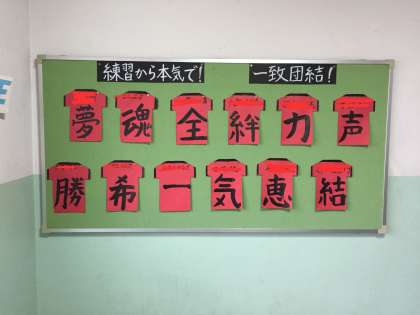 練習から本気で!
一致団結!
夢 魂 全 絆 力 声
勝 希 一 気 恵 結